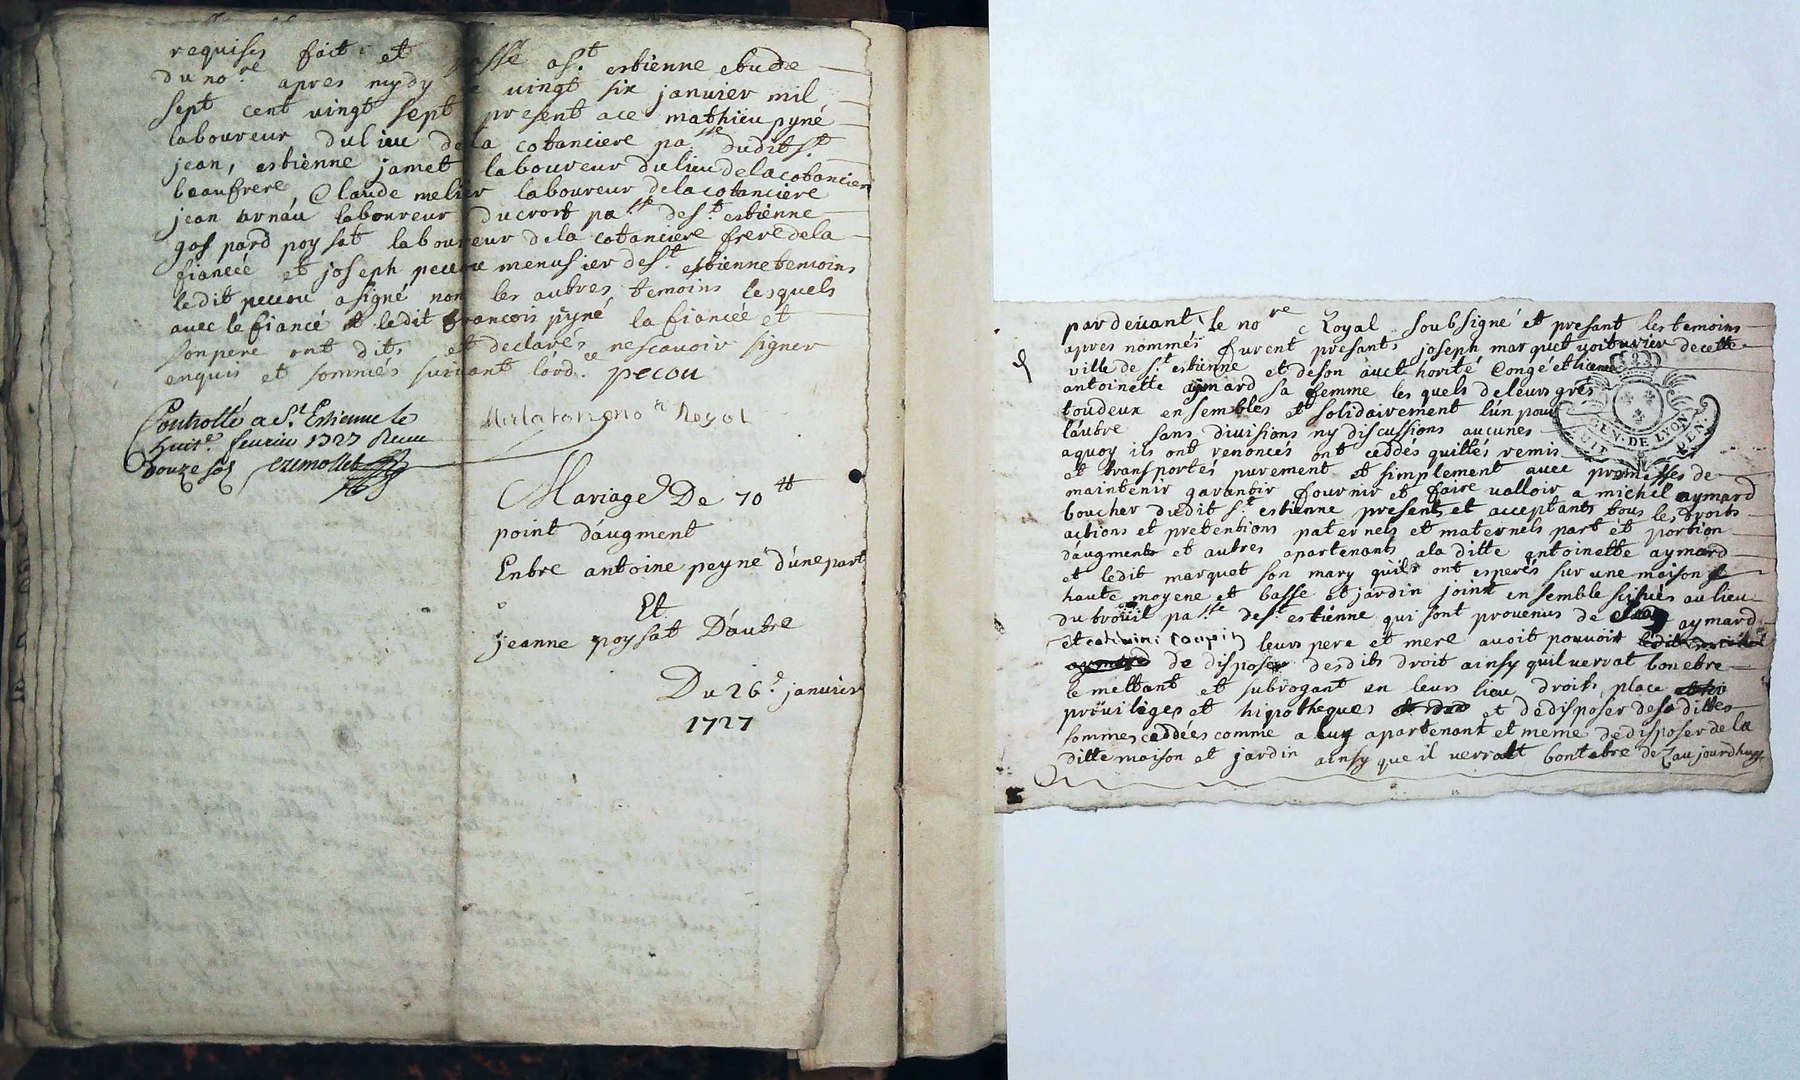 requises fait et passé a St estienne etude
du nore apres mydy le vingt six janvier mil
sept cent vingt sept present a ce mathieu pyné
laboureur du lieu de la cotanciere passe dudit St
jean, estienne jamet laboureur du lieu de la cotanciere
beaufrere, Claude melier laboureur de la cotanciere
jean arnau laboureur du crort passe de St estienne
gaspard poysat laboureur de la cotanciere frere de la
fiancéé et joseph pecou menusier de St estienne temoins
ledit pecou a signé non les autres temoins lesquels
avec le fiancé et ledit francois pyné la fiancéé et
son pere ont dits et declarés ne scavoir signer
enquis et sommés suivant lordce pecou
Controllé a St Estienne le
huite fevrier 1727 Receu
douze sols
nore Royal
Mariage De 70 tt
point d'augment
Entre antoine peyne d'une part
Et
jeanne poysat D'autre
Du 26e janvier
1727
pardevant le nore Royal soubsigné et presant les temoins
apres nommés furent presants joseph marquet voiturier de cette
ville de St estienne et de son aucthorité Congé et licence
antoinette aymard sa femme les quels de leurs grés
toudeux ensembles et solidairement lun pour
lautre sans divisions ny discussions aucunes
a quoy ils ont renoncés ont ceddés quittés remis
et transportés purement et simplement avec promesses de
maintenir garantir fournir et faire valloir a michel aymard
boucher dudit St estienne present et acceptant tous les droits
actions et pretentions paternels et maternels part et portion
d'augments et autres apartenants a la ditte antoinette aymard
et ledit marquet son mary quils ont esperés sur une maison
haute moyene et basse et jardin joint ensemble scitués au lieu
du trouil passe de St estienne qui sont provenus de aymard
et leurs pere et mere avoit pouvoir
de disposer desdits droit ainsy quil verrat bon etre
le mettant et subrogant en leurs lieu droits place
privileges et hipotheques et de disposer desdittes
sommes ceddéés comme a luy apartenant et meme de disposer de la
ditte maison et jardin ainsy que il verratt bont etre dez aujourdhuy
GEN. DE LYON